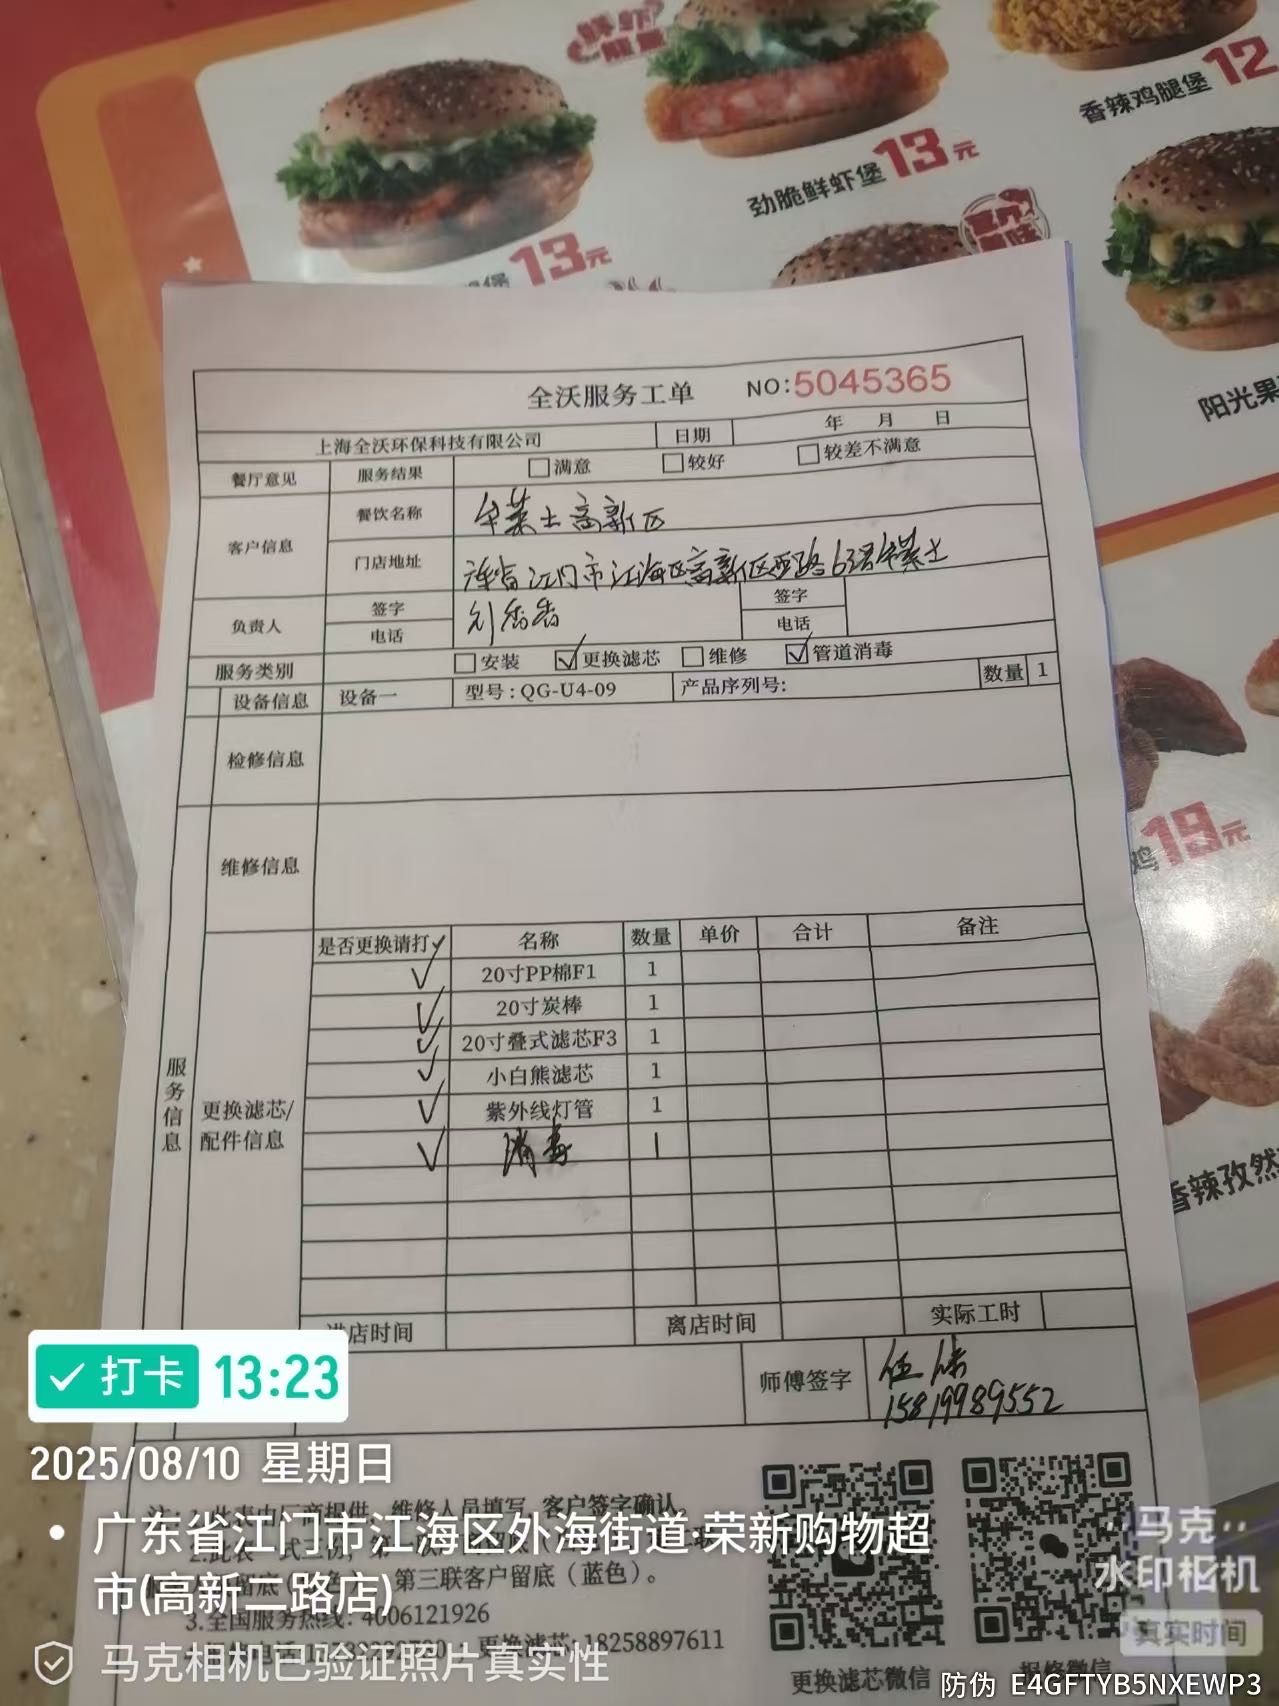 香辣鸡腿堡12
劲脆鲜虾堡13元
堡13元
阳光果
鸡19元
香辣孜然
全沃服务工单 NO:5045365
上海全沃环保科技有限公司 日期 年 月 日
餐厅意见 服务结果 满意 较好 较差不满意
客户信息 餐饮名称 华莱士高新区
门店地址 江门市江海区高新区西路63号华莱士
负责人 签字 刘香香 签字
电话 电话
服务类别 安装 ✓更换滤芯 维修 ✓管道消毒
设备信息 设备一 型号:QG-U4-09 产品序列号: 数量 1
检修信息
维修信息
服务信息
更换滤芯/
配件信息
是否更换请打✓ 名称 数量 单价 合计 备注
✓ 20寸PP棉F1 1
✓ 20寸炭棒 1
✓ 20寸叠式滤芯F3 1
✓ 小白熊滤芯 1
✓ 紫外线灯管 1
✓ 消毒 1
店时间 离店时间 实际工时
师傅签字 伍
15819989552
此表由厂商提供，维修人员填写，客户签字确认。
第三联客户留底（蓝色）。
3.全国服务热线：4006121926
更换滤芯:18258897611
更换滤芯微信 报修微信
打卡 13:23
2025/08/10 星期日
广东省江门市江海区外海街道·荣新购物超
市(高新二路店)
马克相机已验证照片真实性
马克
水印相机
真实时间
防伪 E4GFTYB5NXEWP3